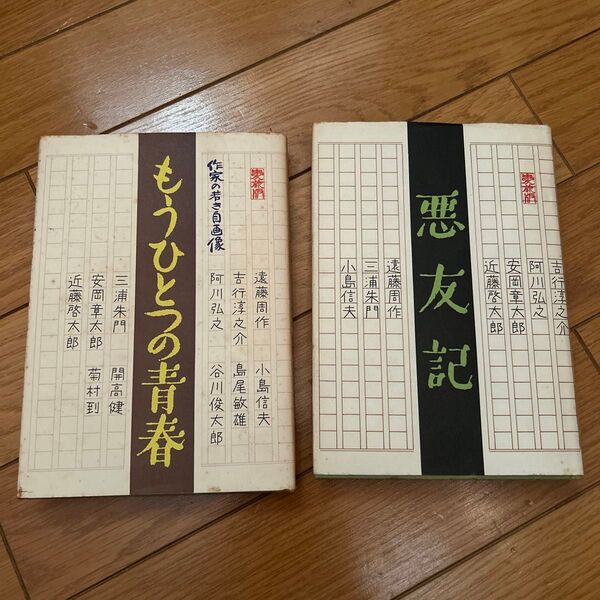 作家の若き自画像
もうひとつの青春
遠藤周作
小島信夫
吉行淳之介
島尾敏雄
阿川弘之
谷川俊太郎
三浦朱門
開高健
安岡章太郎
菊村到
近藤啓太郎
悪友記
吉行淳之介
阿川弘之
安岡章太郎
近藤啓太郎
遠藤周作
三浦朱門
小島信夫